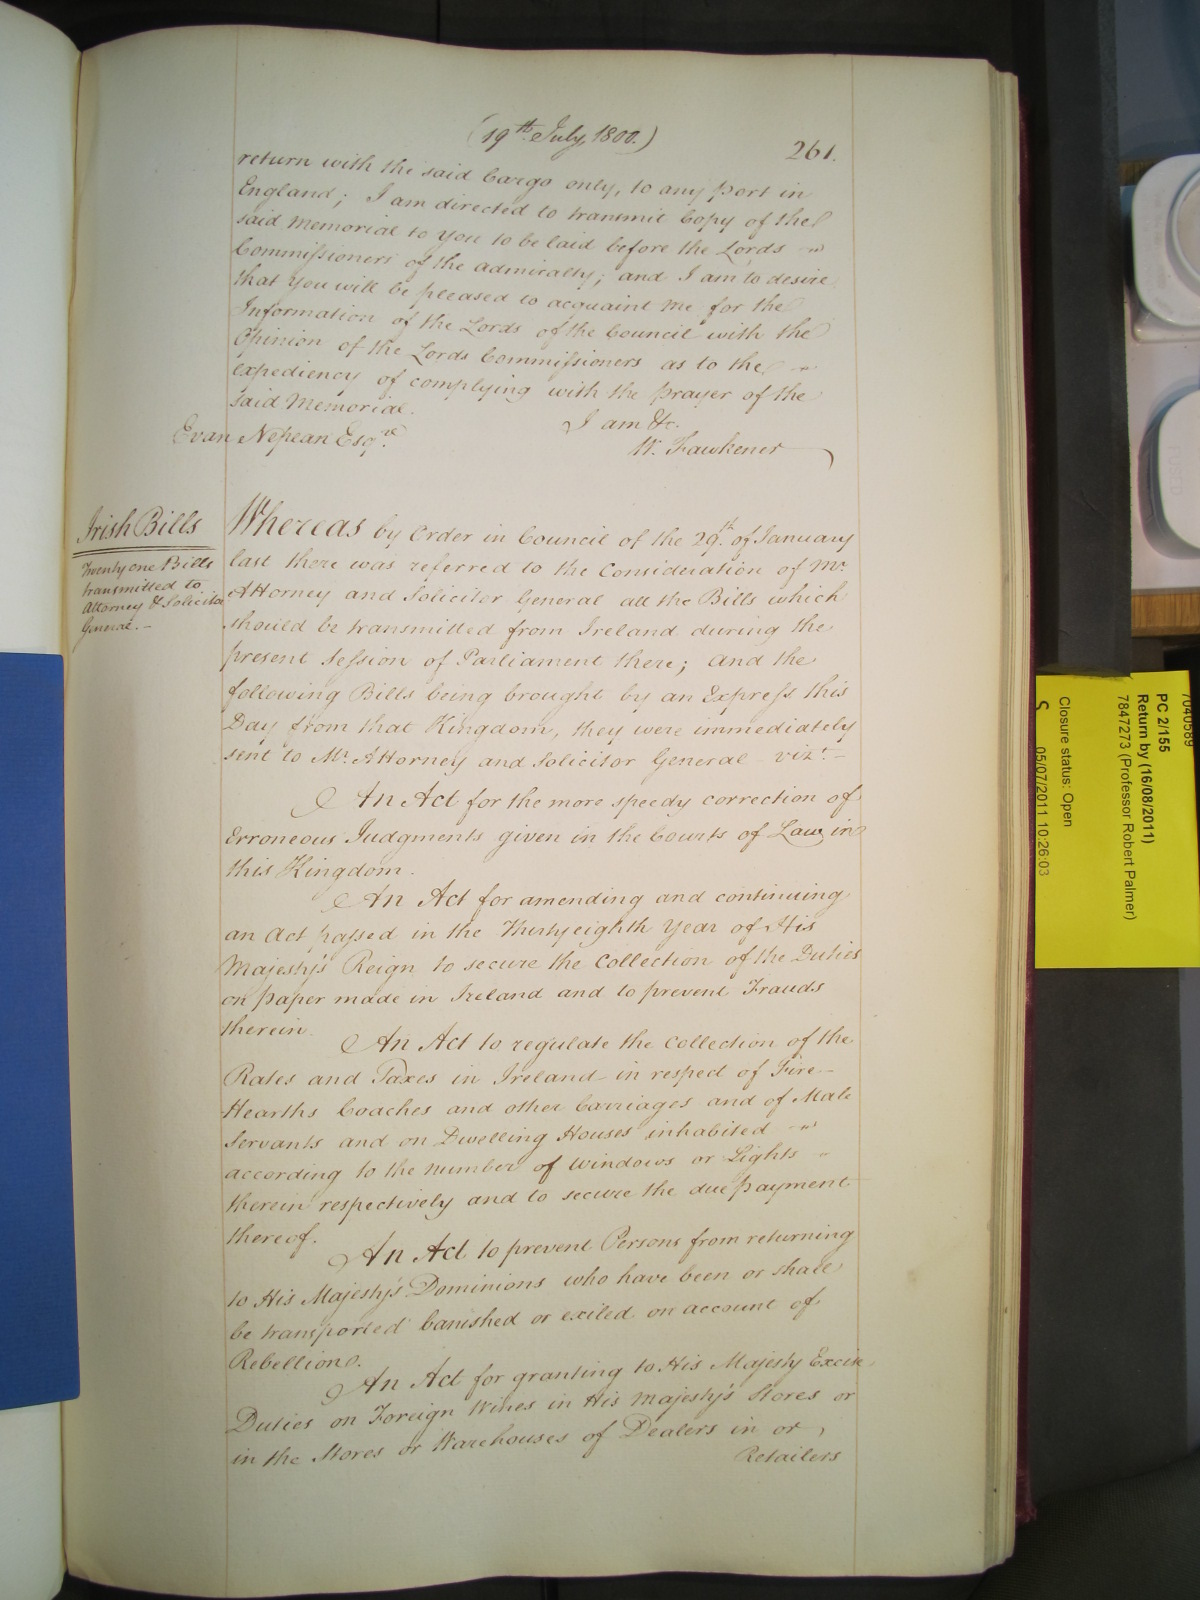 (19th July, 1800.)
261.
return with the said Cargo only, to any port in
England; I am directed to transmit Copy of the
said Memorial to you to be laid before the Lords
Commissioners of the Admiralty; and I am to desire
that you will be pleased to acquaint me for the
Information of the Lords of the Council with the
Opinion of the Lords Commissioners as to the
expediency of complying with the prayer of the
said Memorial.
I am &c.
Evan Nepean Esqre
W. Fawkener
Irish Bills
Twenty one Bills
transmitted to
Attorney & Solicitor
General.-
Whereas by Order in Council of the 29th. of January
last there was referred to the Consideration of Mr.
Attorney and Solicitor General all the Bills which
should be transmitted from Ireland during the
present Session of Parliament there; And the
following Bills being brought by an Express this
Day from that Kingdom, they were immediately
sent to Mr. Attorney and Solicitor General - vizt.-
An Act for the more speedy correction of
Erroneous Judgments given in the Courts of Law in
this Kingdom.
An Act for amending and continuing
an Act passed in the Thirty eighth Year of His
Majesty's Reign to secure the Collection of the Duties
on paper made in Ireland and to prevent Frauds
therein
An Act to regulate the Collection of the
Rates and Taxes in Ireland in respect of Fire-
Hearths Coaches and other Carriages and of Male
Servants and on Dwelling Houses inhabited
according to the number of Windows or Lights
therein respectively and to secure the due payment
thereof.
An Act to prevent Persons from returning
to His Majesty's Dominions who have been or shall
be transported banished or exiled on account of
Rebellion.
An Act for granting to His Majesty Excise
Duties on Foreign Wines in His Majesty's Stores or
in the Stores or Warehouses of Dealers in or
Retailers
7040589
PC 2/155
Return by (16/08/2011)
7847273 (Professor Robert Palmer)
Closure status: Open
05/07/2011 10:26:03